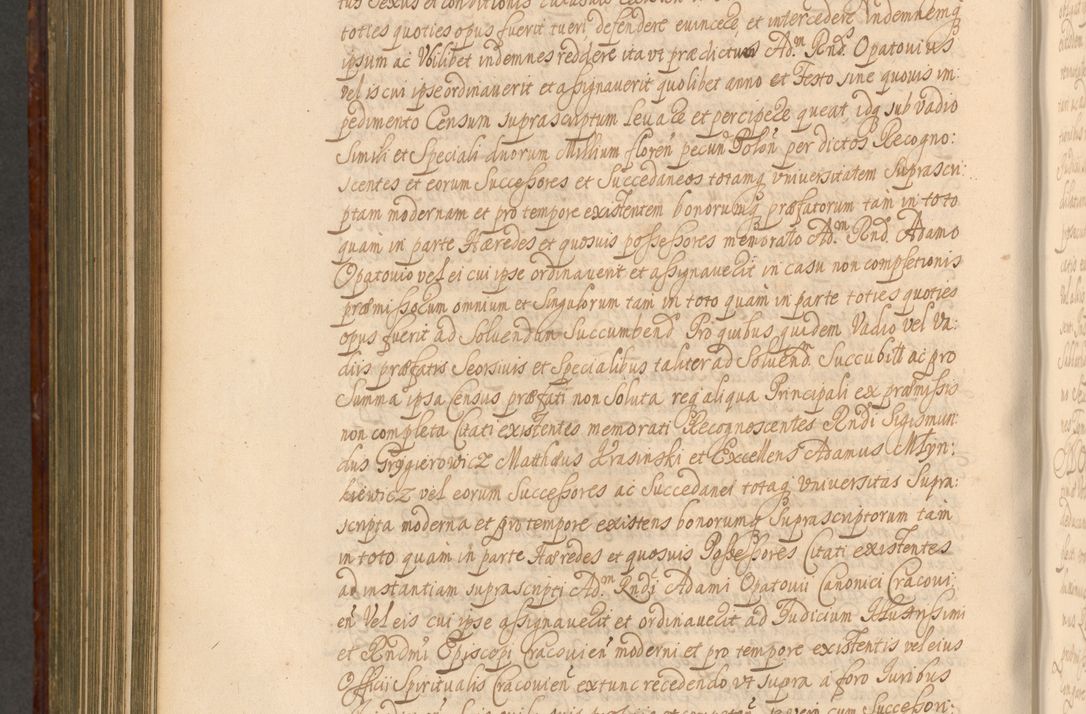 toties quoties opus fuerit tueri defendere evincere, et intercedere Indemnemq
ipsum ac Vbilibet indemnes reddere ita vt prædictus Ad.m Rnds Opatovius
vel is cui ipse ordinauerit et assignauerit quolibet anno et Festo sine quouis im:
pedimento Censum suprascriptum leuare et percipere queat, idq sub vadio
Simili et Speciali duorum Millium floren pecun Polon per dictos Recogno:
scentes et eorum Successores et Succedaneos totamq vniuersitatem Suprascri:
ptam modernam et pro tempore existentem bonorumq præfatorum tam in toto
quam in parte Hæredes et quosuis possessores memorato Ad.m Rnd. Adamo
Opatouio vel ei cui ipse ordinauerit et assignauerit in casu non completionis
præmissorum omnium et Singulorum tam in toto quam in parte toties quoties
opus fuerit ad Soluendum Succumbend Pro quibus quidem Vadio vel Va:
dijs præfatis Seorsiuis et Specialibus taliter ad Soluend. Succubitt ac pro
Summa ipsa Census præfati non Soluta req aliqua Principali ex præmissis
non completa Citati existentes memorati Recognoscentes Rndi Sigismun:
dus Grygierowicz Matthæus Krasinski et Excellens Adamus Młyn:
kiewicz vel eorum Successores ac Succedanei totaq Vniuersitas Supra:
scripta moderna et pro tempore existens bonorumq Suprascriptorum tam
in toto quam in parte Hæredes et quosuis Possessores Citati existentes
ad instantiam suprascripti Ad.m Rndi Adami Opatouii Canonici Cracoui:
en Vel eis cui ipse assignauerit et ordinauerit ad Iudicium Illustrissimi
et Rndmi Episcopi Cracouien moderni et pro tempore existentis vel eius
Officii Spiritualis Cracouien extunc recedendo vt supra a foro Iuribus